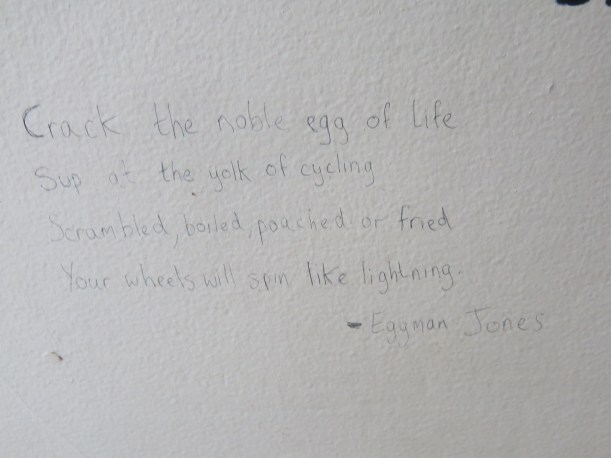 Crack the noble egg of life
Sup at the yolk of cycling
Scrambled, boiled, poached or fried
Your wheels will spin like lightning.
- Eggman Jones